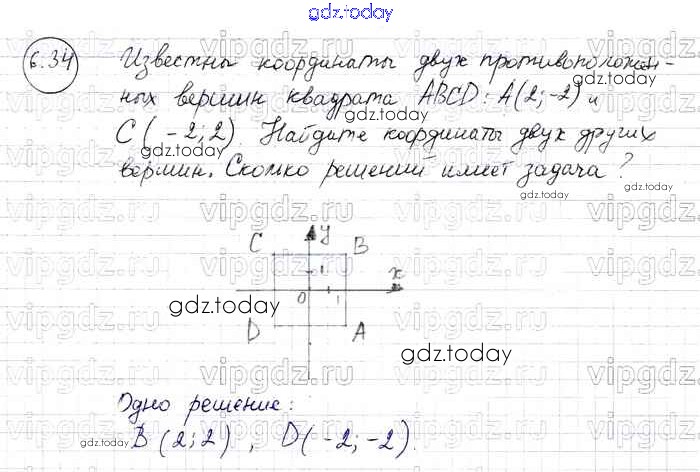 gdz.today
6.34
Известны координаты двух противополож-
ных вершин квадрата ABCD: A(2;-2) и
C(-2;2). Найдите координаты двух других
вершин. Сколько решений имеет задача?
C y B
1 x
0 1
D A
Одно решение:
B(2;2), D(-2;-2).
gdz.today
gdz.today
gdz.today
gdz.today
gdz.today
gdz.today
gdz.today
gdz.today
vipgdz.ru
vipgdz.ru
vipgdz.ru
vipgdz.ru